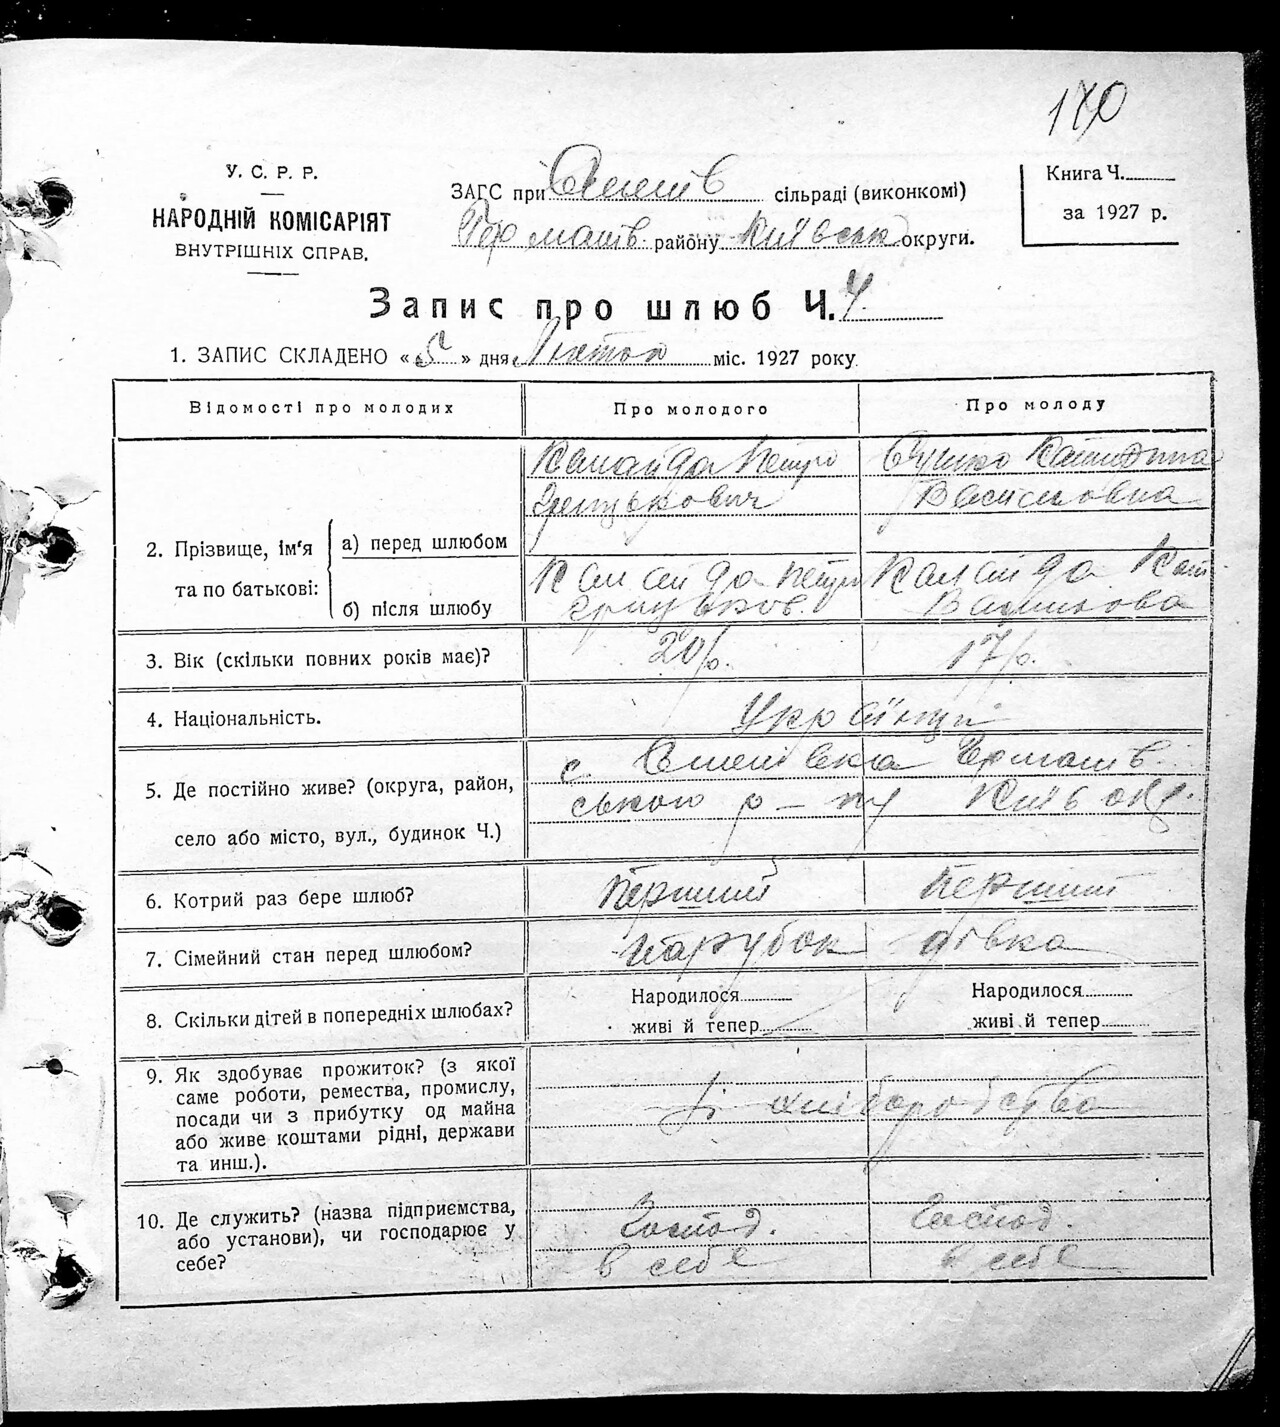 170
У. С. Р. Р.
НАРОДНІЙ КОМІСАРІЯТ
ВНУТРІШНІХ СПРАВ.
ЗАГС при сільраді (виконкомі)
району Київськ округи.
Книга Ч.
за 1927 р.
Запис про шлюб Ч. 4
1. ЗАПИС СКЛАДЕНО « 5 » дня Лютого міс. 1927 року.
Відомості про молодих
Про молодого
Про молоду
2. Прізвище, ім'я
та по батькові:
а) перед шлюбом
б) після шлюбу
Каландa Петро
Грицькович
Катерина
Василівна
Петро
3. Вік (скільки повних років має)?
20 р.
17 р.
4. Національність.
Українці
5. Де постійно живе? (округа, район,
село або місто, вул., будинок Ч.)
с.
ського р-ну Київ окр.
6. Котрий раз бере шлюб?
Перший
Перший
7. Сімейний стан перед шлюбом?
Парубок
дівка
8. Скільки дітей в попередніх шлюбах?
Народилося
живі й тепер
Народилося
живі й тепер
9. Як здобуває прожиток? (з якої
саме роботи, ремества, промислу,
посади чи з прибутку од майна
або живе коштами рідні, держави
та инш.).
Зі хліборобства
10. Де служить? (назва підприємства,
або установи), чи господарює у
себе?
Господ.
в себе
Господ.
в себе